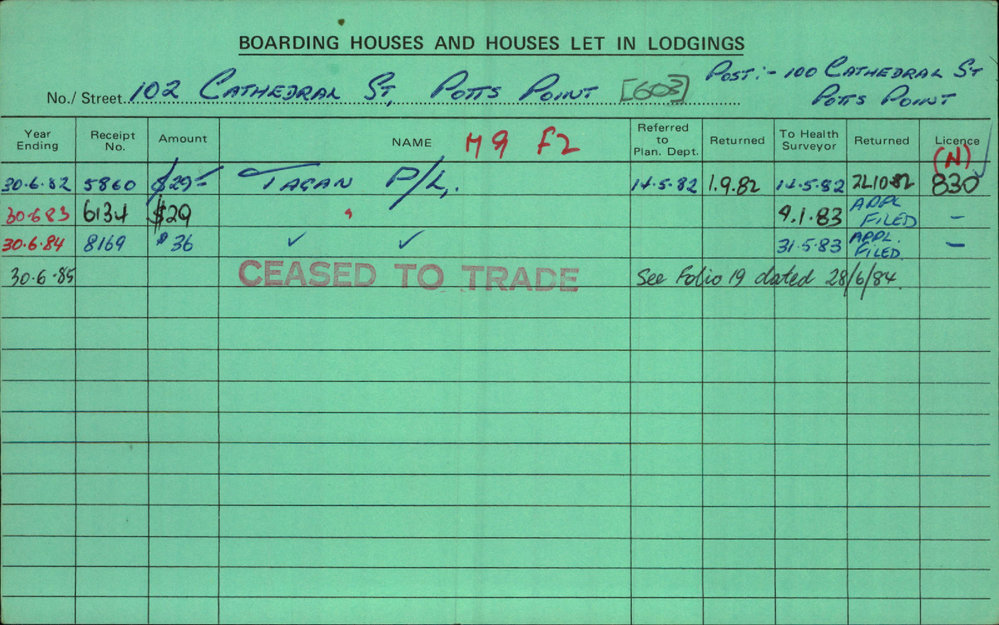 BOARDING HOUSES AND HOUSES LET IN LODGINGS
No./ Street. 102 CATHEDRAL ST, POTTS POINT [603]
POST:- 100 CATHEDRAL ST
POTTS POINT
Year Ending Receipt No. Amount NAME M9 F2 Referred to Plan. Dept. Returned To Health Surveyor Returned Licence
(N)
30.6.82 5860 $29- TAGAN P/L. 14.5.82 1.9.82 14.5.82 22.10.82 830
30.6.83 6134 $29 " 9.1.83 APPL FILED -
30.6.84 8169 $36 ✓ ✓ 31.5.83 APPL. FILED. -
30.6.85 CEASED TO TRADE See Folio 19 dated 28/6/84.